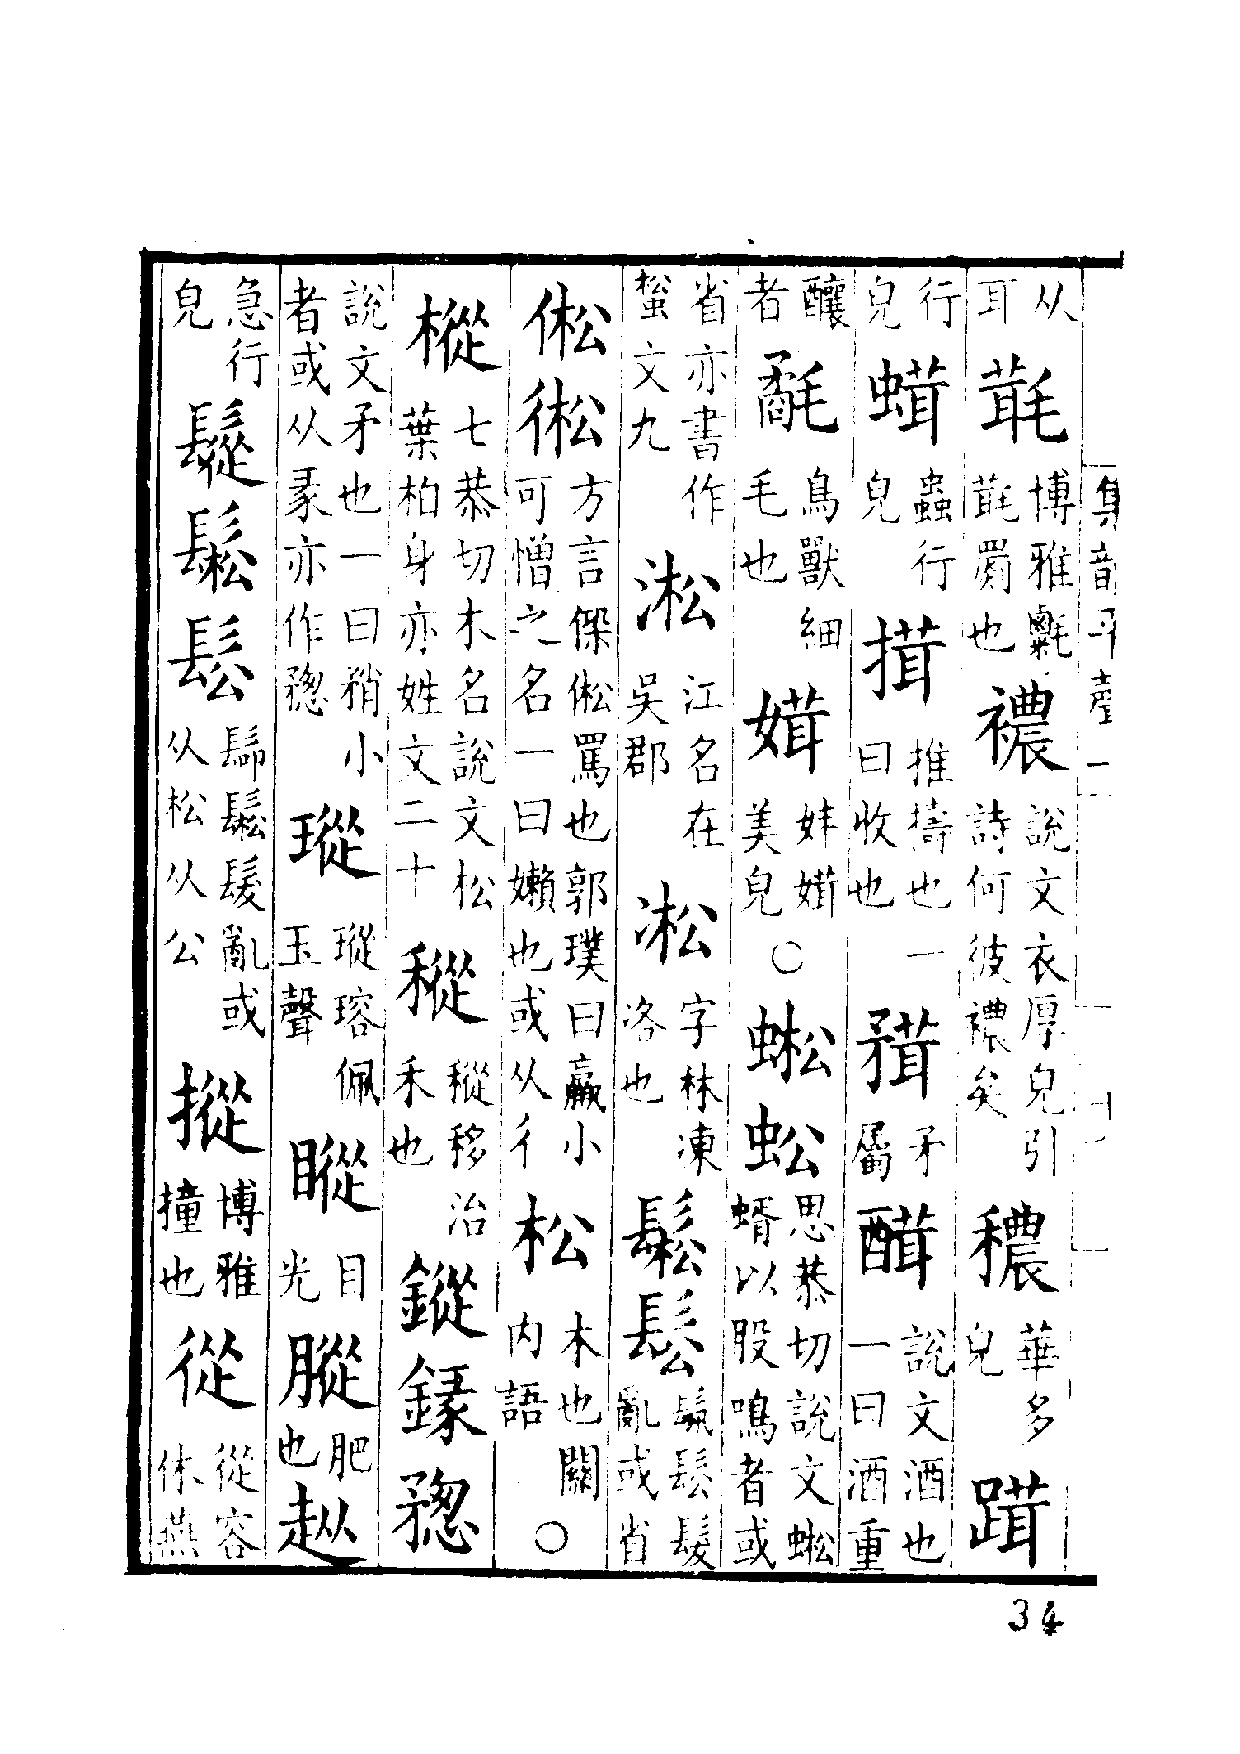 集韻平聲一
从耳㲨博雅㲨罽也襛說文衣厚皃引詩何彼襛矣穠華多皃
行皃蟲行皃搑推擣也一曰收也矛屬說文酒也一曰酒重
釀者氄鳥獸細毛也媶妦媶美皃○蜙蚣思恭切說文蜙蝑以股鳴者或
省亦書作文九淞江名在吳郡凇字林凍洛也鬆鬆髮亂或省
倯㣝方言傑倯罵也郭璞曰羸小可憎之名一曰嬾也或从彳松木也關內語○
樅七恭切木名說文松葉柏身亦姓文二十移治禾也鏦
說文矛也一曰矟小者或从彖亦作瑽瑽瑢佩玉聲目光肥也
急行皃鬆鬆髮亂或从松从公摐博雅撞也從從容休燕
34